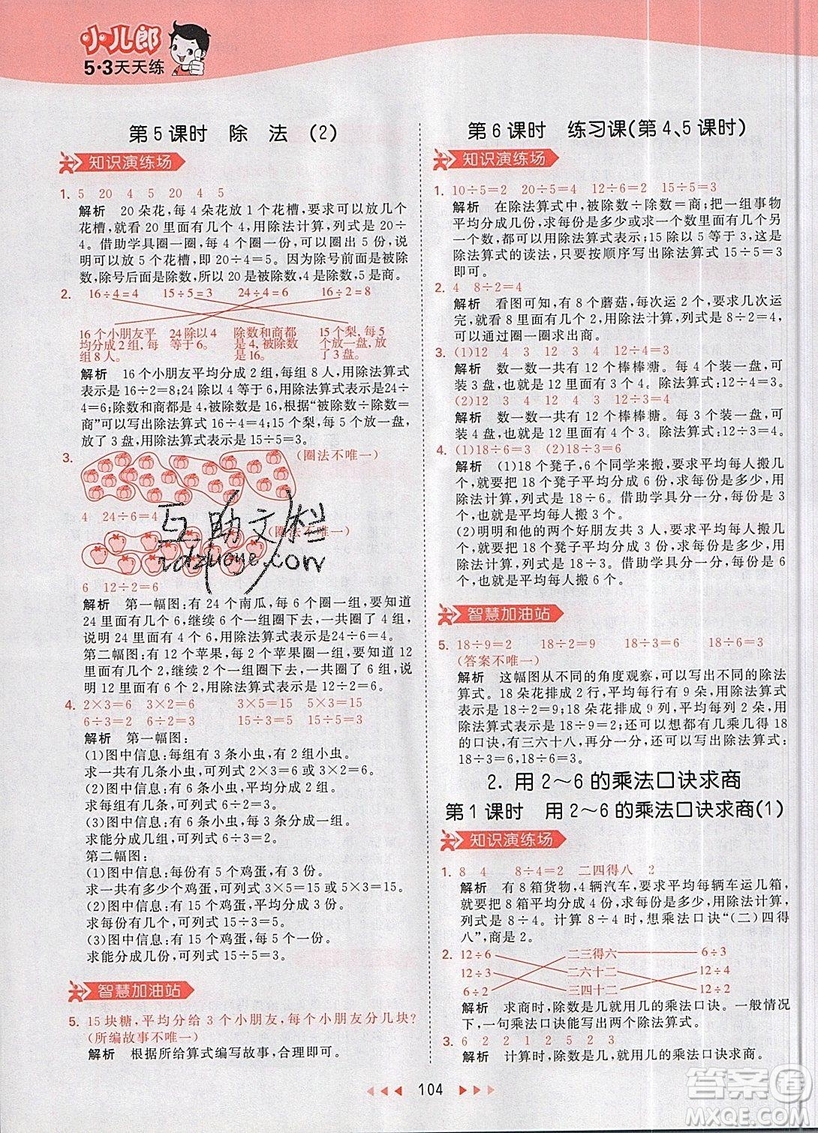 小儿郎
5·3天天练
第5课时 除 法 (2)
知识演练场
1. 5 20 4 5 20 4 5
解析 20朵花,每4朵花放1个花槽,要求可以放几个
花槽,就要求20里面有几个4,用除法计算,列式是20÷
4。借助学具圈一圈,每4个圈一份,可以圈出5份,说
明可以放5个花槽,即20÷4=5。因为除号前面是被除
数,除号后面是除数,所以被除数是20,除数是4,商是5。
2. 16÷4=4 15÷5=3 24÷4=6 16÷2=8
16个小朋友平 24除以4 除数和商都 15个梨,每5个
均分成2组,每 等于6。 是4,被除数 放1盘,放了
组8人。 是16。 3盘。
解析 16个小朋友平均分成2组,每组8人,用除法算式
表示是16÷2=8;24除以4等于6,用除法算式表示是24÷
4=6;除数和商都是4,被除数是16,根据“被除数÷除数=
商”可以写出除法算式16÷4=4;15个梨,每5个放一盘,
放了3盘,用除法算式表示是15÷5=3。
3. (圈法不唯一)
4 24÷6=4
(圈法不唯一)
6 12÷2=6
解析 第一幅图:有24个南瓜,每6个圈一份,要知道24
里面有几个6,继续6个一组圈下去,一共圈了4组,说明
24里面有4个6,用除法算式表示是24÷6=4。
第二幅图:有12个苹果,每2个苹果圈一份,要知道12
里面有几个2,继续2个一组圈下去,一共圈了6组,说明
12里面有6个2,用除法算式表示是12÷2=6。
4. 2×3=6 6÷2=3 3×5=15 15÷5=3
6÷3=2 15÷3=5
解析 第一幅图:
(1)图中信息:每组有3条小虫,有2组。
求一共有几条小虫,可列式2×3=6。
(2)图中信息:有6条小虫,平均分成2组。
求每组分几条,可列式6÷2=3。
(3)图中信息:有6条小虫,每3条分成一组。
求能分成几组,可列式6÷3=2。
第二幅图:
(1)图中信息:每份有5个鸡蛋,有3份。
求一共有多少个鸡蛋,可列式3×5=15。
(2)图中信息:有15个鸡蛋,平均分成3份。
求每份有几个,可列式15÷3=5。
(3)图中信息:有15个鸡蛋,每5个鸡蛋分成一份。
求能分成几份,可列式15÷5=3。
智慧加油站
5. 15块糖,平均分给3个小朋友,每个小朋友分几块?
(所编故事不唯一)
解析 根据所给算式编写故事,合理即可。
第6课时 练习课(第4、5课时)
知识演练场
1. 10÷5=2 20÷5=4 12÷6=2 15÷5=3
解析 在除法算式中,被除数÷除数=商;把一组事物
平均分成几份,求每份是多少或求一个数里面有几个
另一个数,都可以用除法算式表示;15除以5等于3,这
是除法算式的读法,只要按顺序用除法算式写出15÷
5=3即可。
2. 8 2 4 8÷2=4
解析 看图可知,有8个蘑菇,每次运2个,要求几次运
完,就要求8里面有几个2,用除法计算,列式是8÷2,
可以通过圈一圈求出商。
3. (1)12 4 3 12 3 4 12÷4=3
解析 数一数一共有12个棒棒糖。每4个装一盘,可
装3盘,用除法算式表示是12÷4=3。
(2)12 3 4 12÷3=4
解析 数一数一共有12个棒棒糖。每3个装一盘,可
装4盘,用除法算式表示是12÷3=4。
4. (1)18÷6=3(个) (2)18÷3=6(个)
解析 (1)18个凳子,6个同学来搬,要求平均每人搬几
个,就要把18个凳子平均分成6份,求每份是多少,用除
法计算,列式是18÷6。借助学具分一分,可得平均每
人搬3个。
(2)明明和他的两个好朋友共3人,要求平均每人搬几
个,就要把18个凳子平均分成3份,求每份是多少,用
除法计算,列式是18÷3。借助学具分一分,可得平均
每人搬6个。
智慧加油站
5. 18÷9=2 18÷2=9 18÷3=6 18÷6=3
(答案不唯一)
解析 这幅图从不同的角度观察,可以写出不同的除法
算式。18朵花分成9列,平均每行有几朵?可以写出
除法算式18÷9=2;还可以想,都有几乘几得18
的口诀,有三六十八,可以写出除法算式18÷3=6或
18÷6=3。
2. 用2～6的乘法口诀求商
第1课时 用2～6的乘法口诀求商(1)
知识演练场
1. 8 4 8÷4=2 二四得八 2
解析 有8箱货物,4辆汽车,要求平均每辆运几箱,可
列式为8÷4。计算8÷4时,想乘法口诀“(二)四得
八”,商是2。
2. 12÷6 二三得六 6÷3
12÷4 二六十二 6÷2
12÷3 三四十二 12÷2
解析 求商时,除数是几就用几的乘法口诀。一般情况下,
一句乘法口诀可以写出两个除法算式。
3. 6 2 2 1 3 5 2 3
解析 计算时,除数是几,就想几的乘法口诀求商。
104
互助文档
zdzuowe.com
答案圈
MXQE.COM